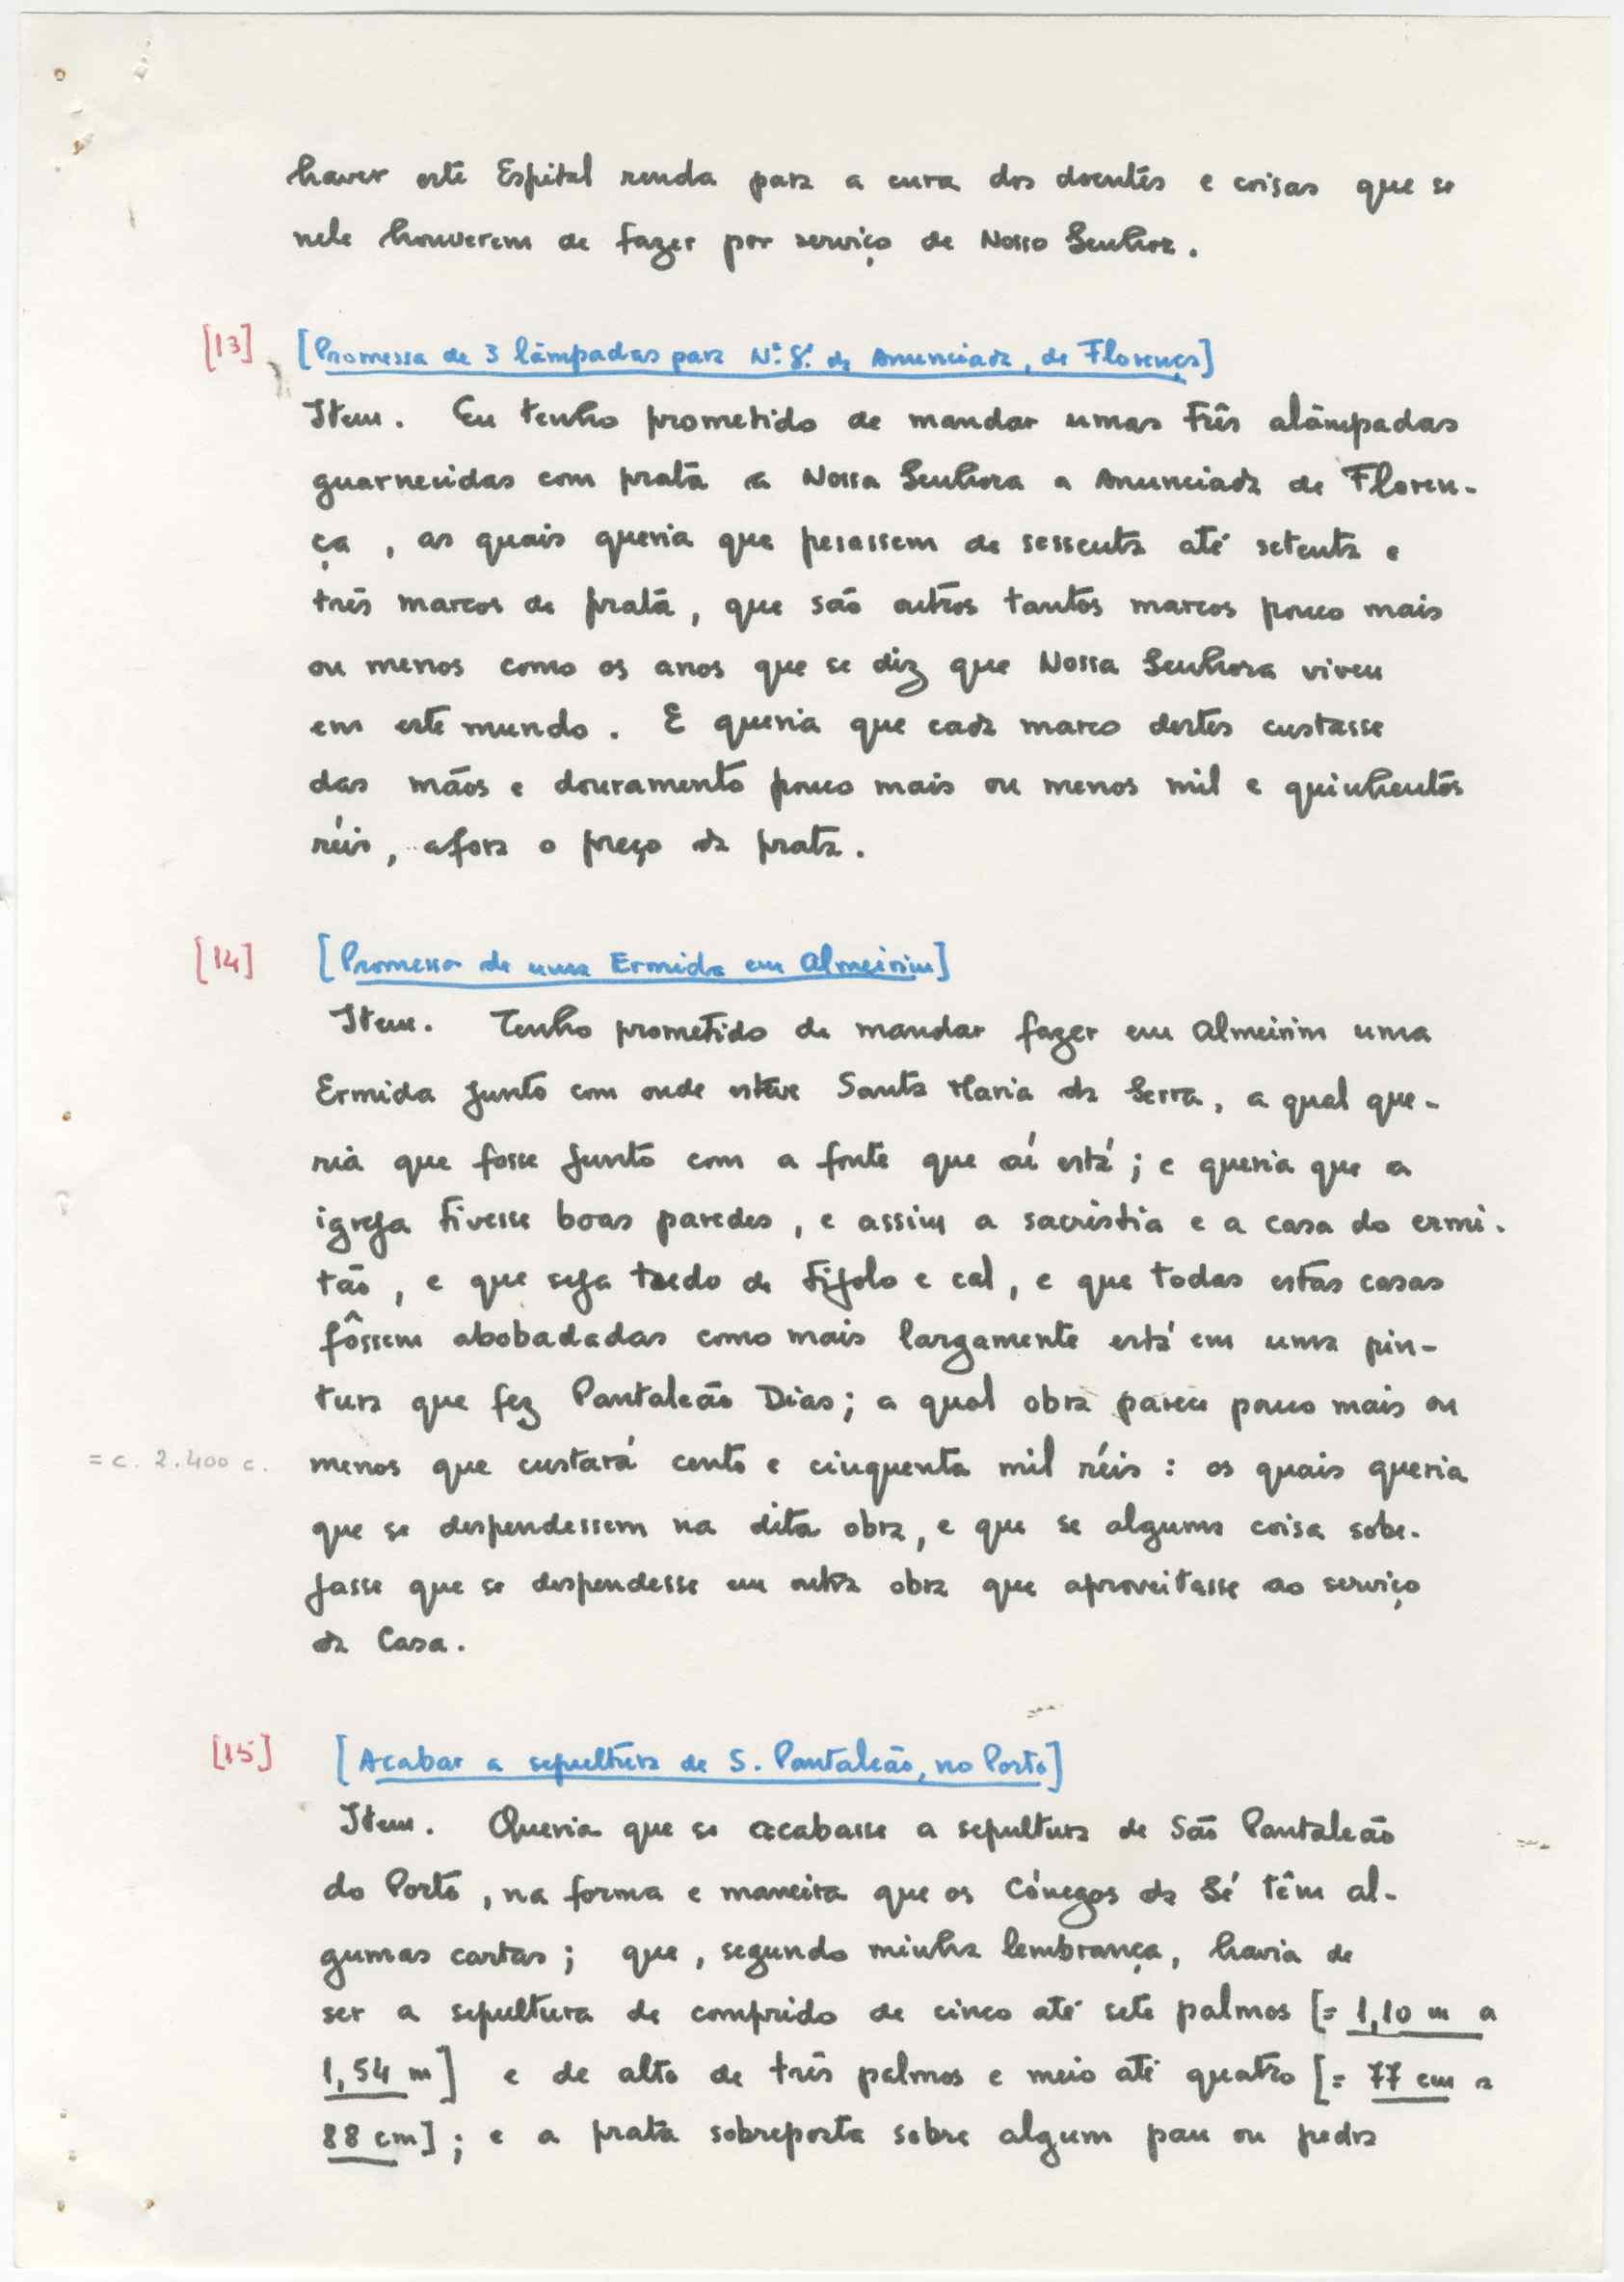 haver este Espital renda para a cura dos doentes e coisas que se
nele houverem de fazer por serviço de Nosso Senhor.
[13] [Promessa de 3 lâmpadas para N.ª S.ª da Anunciada, de Florença]
Item. Eu tenho prometido de mandar umas três alâmpadas
guarnecidas com prata a Nossa Senhora a Anunciada de Floren-
ça, as quais queria que pesassem de sessenta até setenta e
três marcos de prata, que são outros tantos marcos pouco mais
ou menos como os anos que se diz que Nossa Senhora viveu
em este mundo. E queria que cada marco destes custasse
das mãos e douramento pouco mais ou menos mil e quinhentos
réis, afora o preço da prata.
[14] [Promessa de uma Ermida em Almeirim]
Item. Tenho prometido de mandar fazer em Almeirim uma
Ermida junto com onde esteve Santa Maria da Serra, a qual que-
ria que fosse junto com a fonte que aí está; e queria que a
igreja tivesse boas paredes, e assim a sacristia e a casa do ermi-
tão, e que seja tudo de tijolo e cal, e que todas estas casas
fôssem abobadadas como mais largamente está em uma pin-
tura que fez Pantaleão Dias; a qual obra parece pouco mais ou
= c. 2.400 c. menos que custará cento e cinquenta mil réis: os quais queria
que se despendessem na dita obra, e que se alguma coisa sobe-
jasse que se despendesse em outra obra que aproveitasse ao serviço
da Casa.
[15] [Acabar a sepultura de S. Pantaleão, no Porto]
Item. Queria que se acabasse a sepultura de São Pantaleão
do Porto, na forma e maneira que os Cónegos da Sé têm al-
gumas cartas; que, segundo minha lembrança, havia de
ser a sepultura de comprido de cinco até sete palmos [= 1,10 m a
1,54 m] e de alto de três palmos e meio até quatro [= 77 cm a
88 cm]; e a prata sobreposta sobre algum pau ou pedra